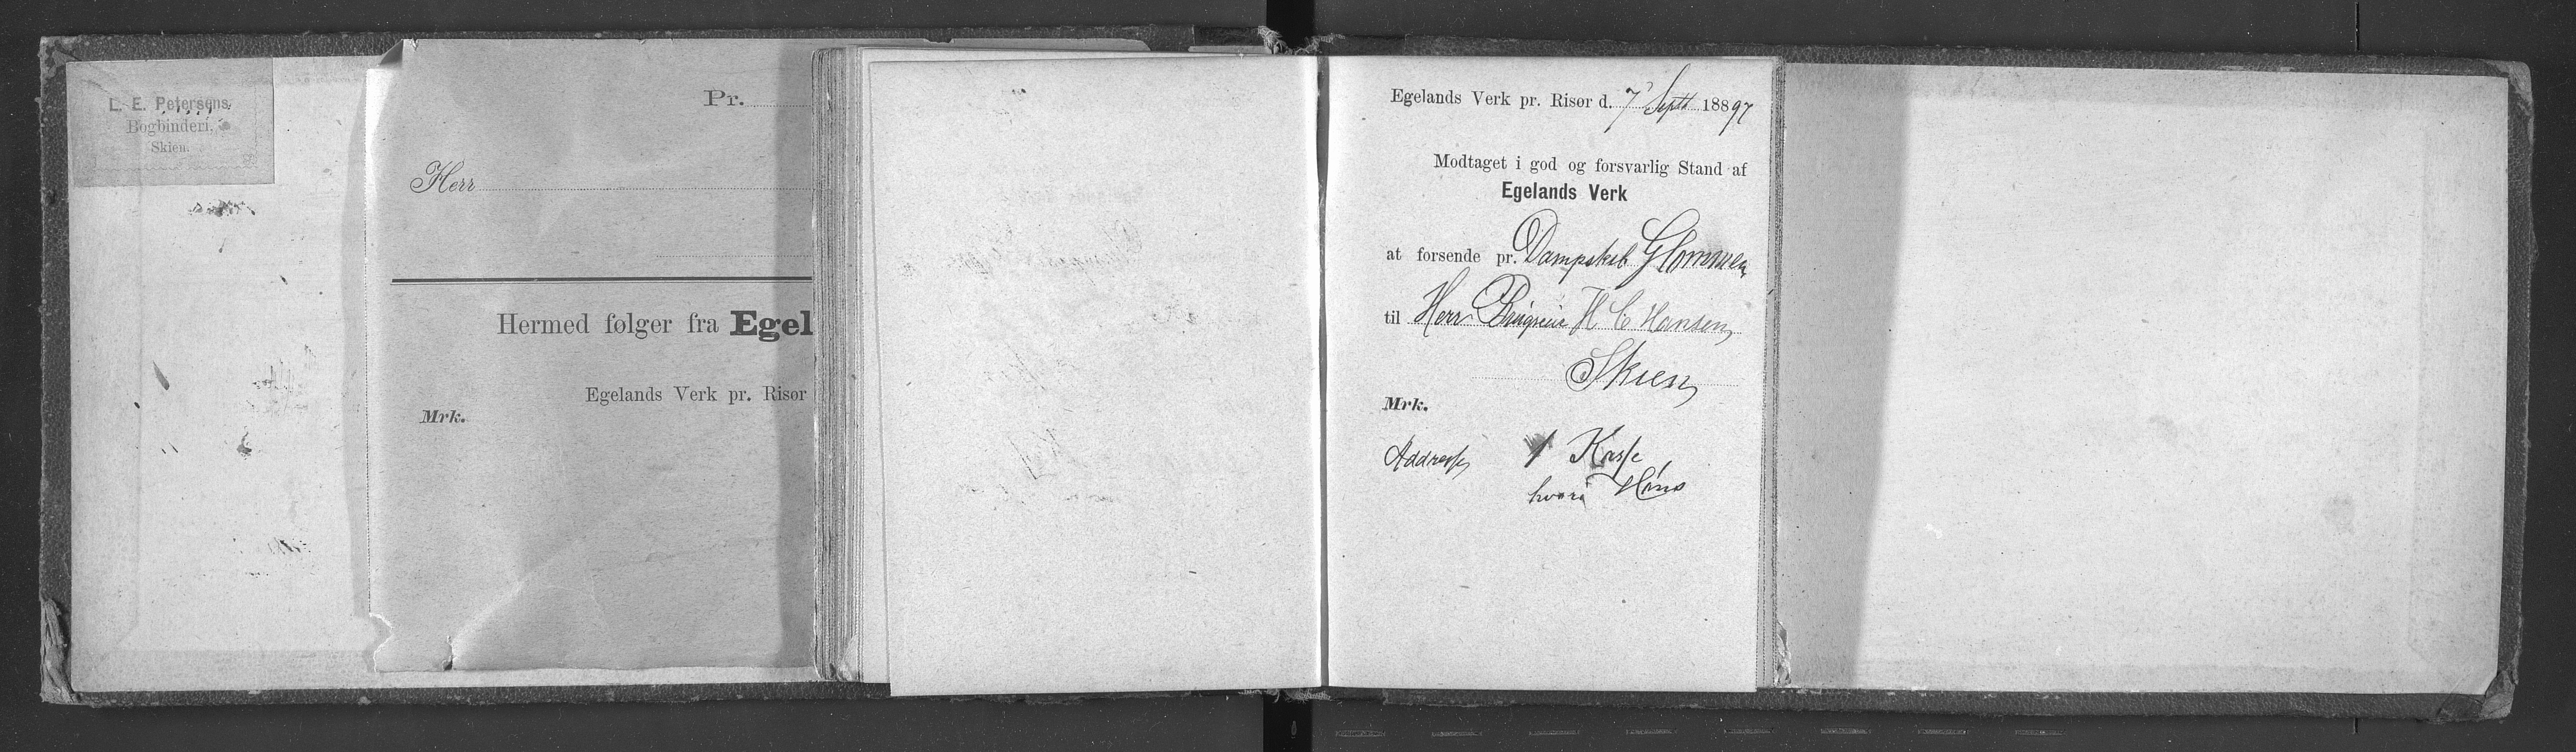 L. E. Petersens
Bogbinderi,
Skien.
Pr.
Herr
Hermed følger fra Egel
Egelands Verk pr. Risør
Mrk.
Egelands Verk pr. Risør d. 7' Sept 18897
Modtaget i god og forsvarlig Stand af
Egelands Verk
at forsende pr. Dampskib Glommen
til Herr H C Hansen
Skien
Mrk.
Addresse 1 Kasse
hvori Høns